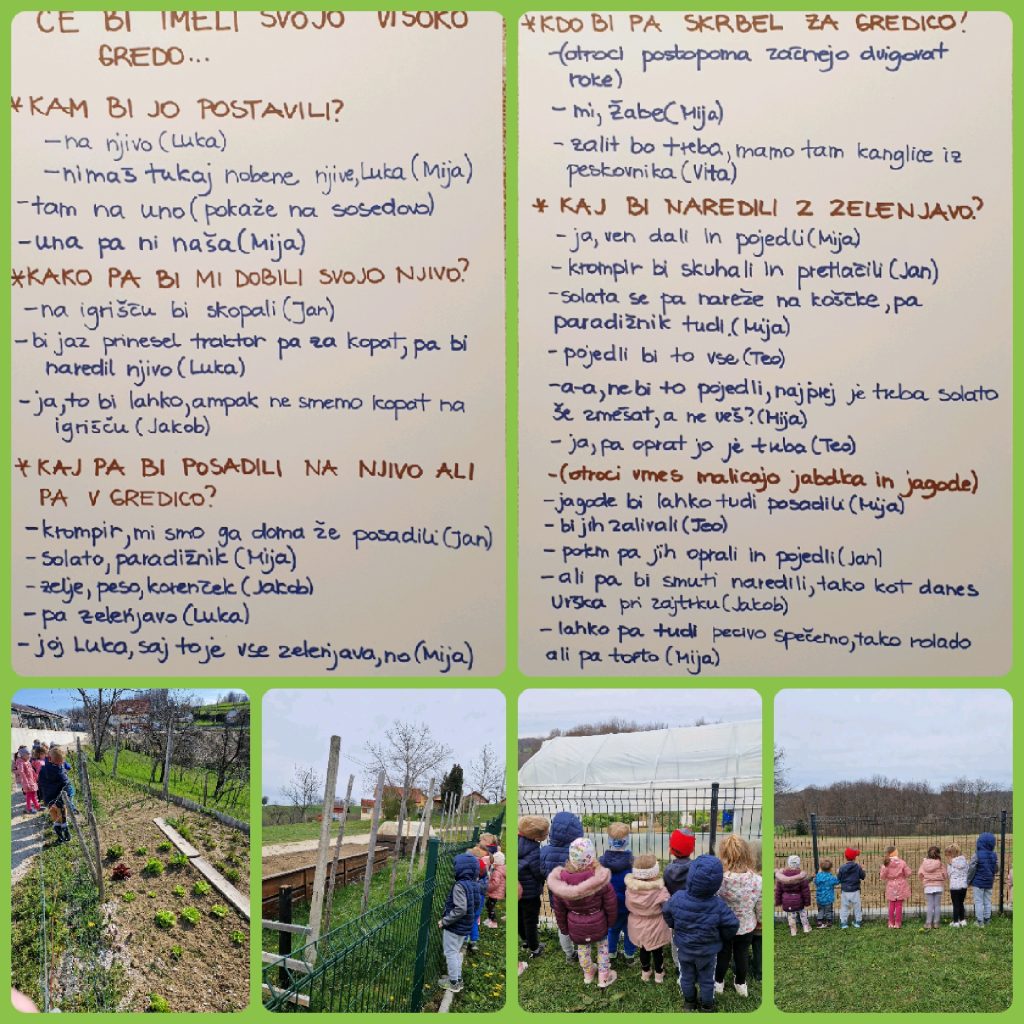 ČE BI IMELI SVOJO VISOKO
GREDO...
*KAM BI JO POSTAVILI?
-na njivo (Luka)
-nimaš tukaj nobene njive, Luka (Mija)
-tam na uno (pokaže na sosedovo)
-una pa ni naša (Mija)
*KAKO PA BI MI DOBILI SVOJO NJIVO?
-na igrišču bi skopali (Jan)
-bi jaz prinesel traktor pa za kopat, pa bi
naredil njivo (Luka)
-ja, to bi lahko, ampak ne smemo kopat na
igrišču (Jakob)
*KAJ PA BI POSADILI NA NJIVO ALI
PA V GREDICO?
-krompir, mi smo ga doma že posadili (Jan)
-Solato, paradižnik (Mija)
-zelje, peso, korenček (Jakob)
-pa zelenjavo (Luka)
-joj Luka, saj to je vse zelenjava, no (Mija)
*KDO BI PA SKRBEL ZA GREDICO?
-(otroci postopoma začnejo dvigovat
roke)
-mi, Žabe (Mija)
-zalit bo treba, mamo tam kanglice iz
peskovnika (Vita)
*KAJ BI NAREDILI Z ZELENJAVO?
-ja, ven dali in pojedli (Mija)
-krompir bi skuhali in pretlačili (Jan)
-solata se pa nareže na koščke, pa
paradižnik tudi. (Mija)
-pojedli bi to vse (Teo)
-a-a, ne bi to pojedli, najprej je treba solato
še zmešat, a ne veš? (Mija)
-ja, pa oprat jo je treba (Teo)
-(otroci vmes malicajo jabolka in jagode)
-jagode bi lahko tudi posadili (Mija)
-bi jih zalivali (Teo)
-potem pa jih oprali in pojedli (Jan)
-ali pa bi smuti naredili, tako kot danes
Urška pri zajtrku (Jakob)
-lahko pa tudi pecivo spečemo, tako rolado
ali pa torto (Mija)